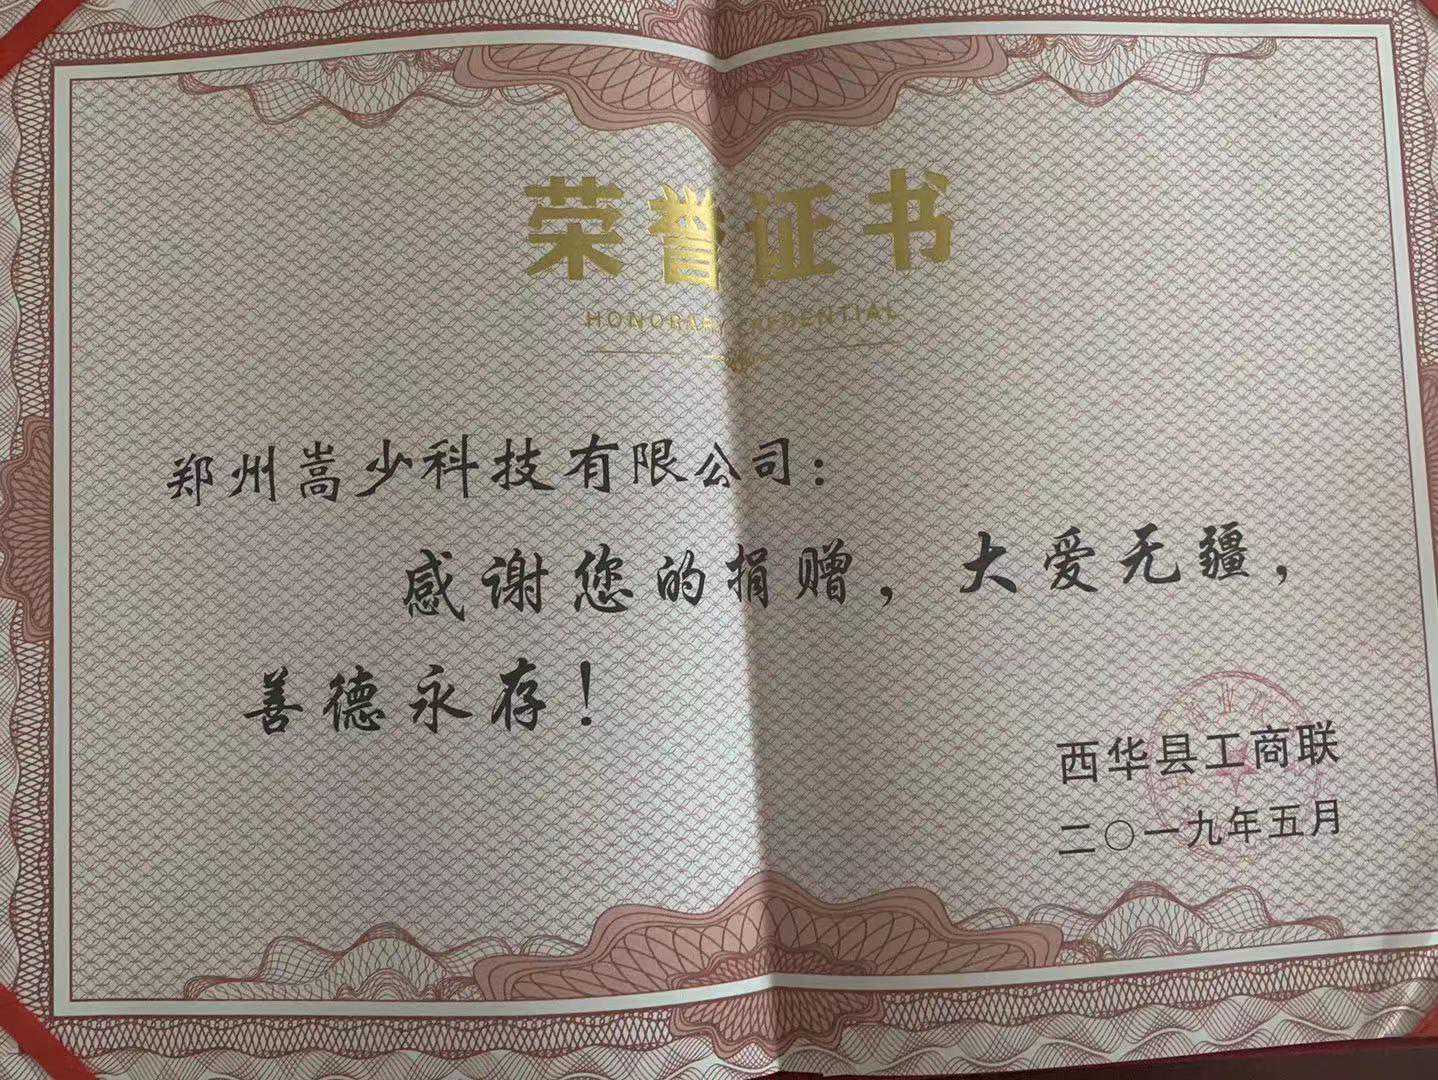 荣誉证书
HONORARY CREDENTIAL
郑州嵩少科技有限公司：
感谢您的捐赠，大爱无疆，
善德永存！
西华县工商联
二〇一九年五月